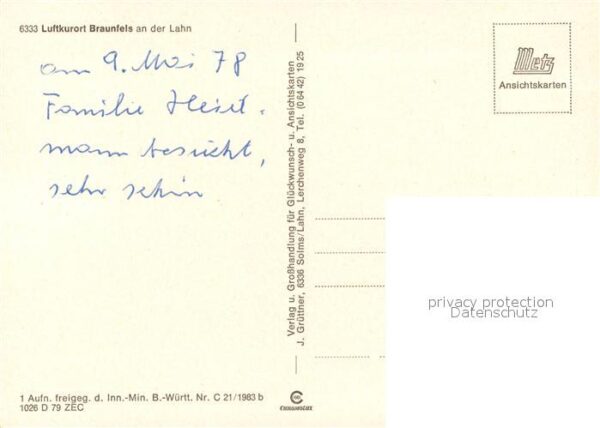 6333 Luftkurort Braunfels an der Lahn
am 9. Mai 78
Familie
mann besucht,
sehr schön
Verlag u. Großhandlung für Glückwunsch- u. Ansichtskarten
J. Grüttner, 6336 Solms/Lahn, Lerchenweg 8, Tel. (0 64 42) 19 25
Metz
Ansichtskarten
privacy protection
Datenschutz
1 Aufn. freigeg. d. Inn.-Min. B.-Württ. Nr. C 21/1983 b
1026 D 79 ZEC